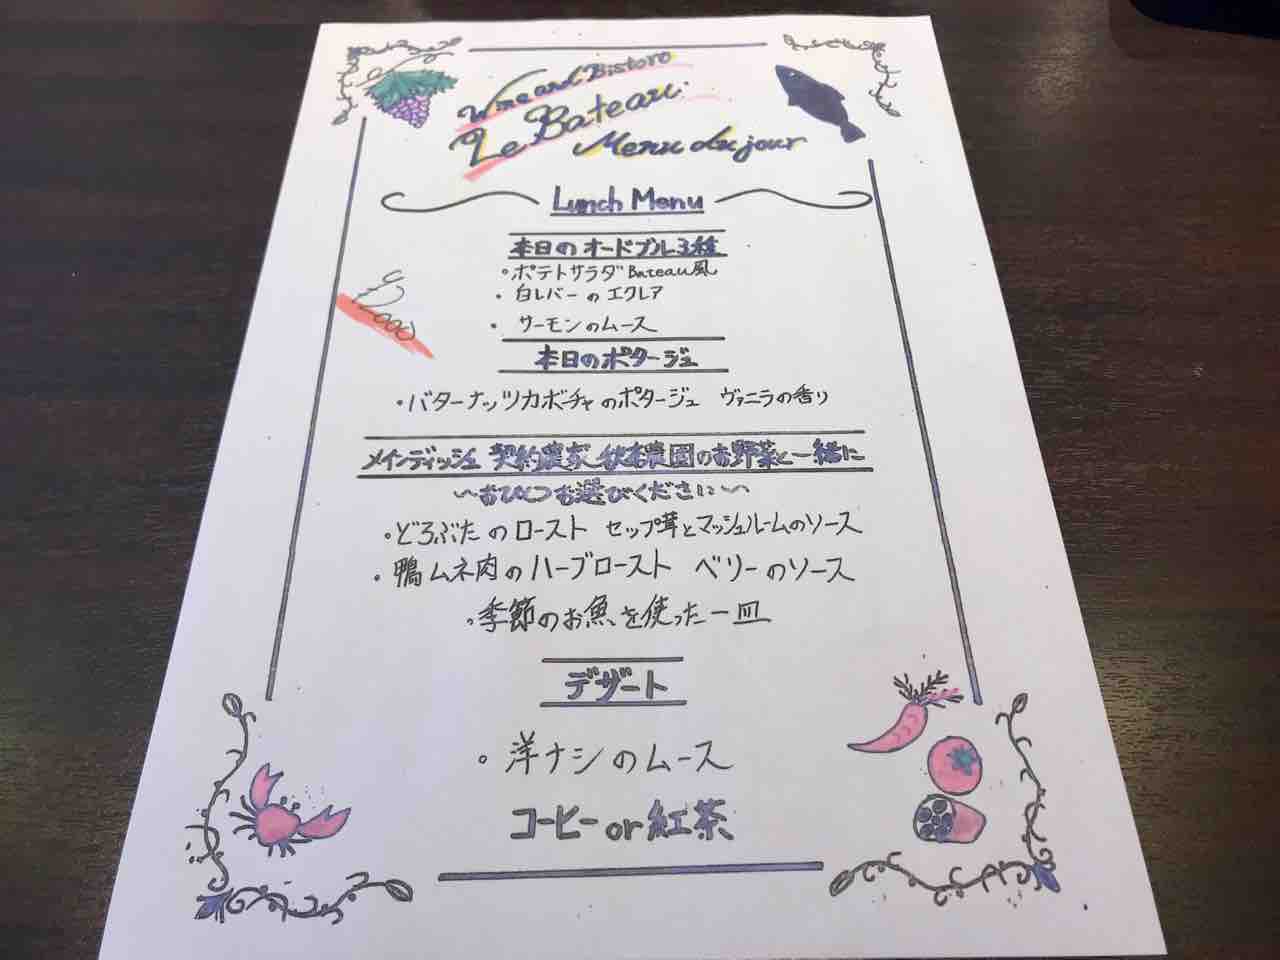 Wine and Bistoro
Le Bateau
Menu du jour
Lunch Menu
本日のオードブル3種
・ポテトサラダBateau風
・白レバーのエクレア
・サーモンのムース
本日のポタージュ
・バターナッツカボーチャのポタージュ ヴァニラの香り
メインディッシュ 契約農家 農園のお野菜と一緒に
〜おひとつお選びください〜
・どろぶたのロースト セップ茸とマッシュルームのソース
・鴨ムネ肉のハーブロースト ベリーのソース
・季節のお魚を使った一皿
デザート
・洋ナシのムース
コーヒーor紅茶